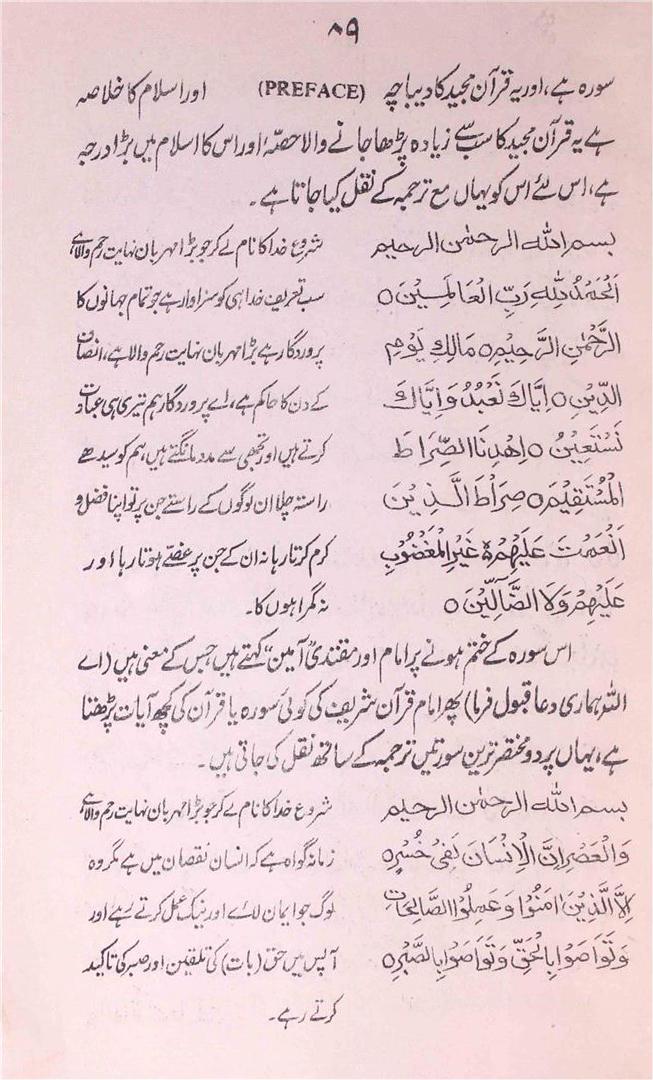 ۸۹
سورہ ہے، اور یہ قرآن مجید کا دیباچہ (PREFACE) اور اسلام کا خلاصہ
ہے یہ قرآن مجید کا سب سے زیادہ پڑھا جانے والا حصّہ اور اس کا اسلام میں بڑا درجہ
ہے، اس لئے اس کو یہاں مع ترجمہ کے نقل کیا جاتا ہے۔
بسم اللہ الرحمٰن الرحیم
اَلْحَمْدُ لِلّٰهِ رَبِّ الْعَالَمِيْنَ ○
الرَّحْمٰنِ الرَّحِيْمِ ○ مَالِكِ يَوْمِ
الدِّيْنِ ○ اِيَّاكَ نَعْبُدُ وَ اِيَّاكَ
نَسْتَعِيْنُ ○ اِهْدِنَا الصِّرَاطَ
الْمُسْتَقِيْمَ ○ صِرَاطَ الَّذِيْنَ
اَنْعَمْتَ عَلَيْهِمْ ۙ غَيْرِ الْمَغْضُوْبِ
عَلَيْهِمْ وَلَا الضَّآلِّيْنَ ○
شروع خدا کا نام لے کر جو بڑا مہربان نہایت رحم والا ہے
سب تعریف خدا ہی کو سزاوار ہے جو تمام جہانوں کا
پروردگار ہے بڑا مہربان نہایت رحم والا ہے، انصاف
کے دن کا حاکم ہے، اے پروردگار ہم تیری ہی عبادت
کرتے ہیں اور تجھی سے مدد مانگتے ہیں، ہم کو سیدھے
راستہ چلا ان لوگوں کے راستے جن پر تو اپنا فضل و
کرم کرتا رہا نہ ان کے جن پر غصّے ہوتا رہا اور
نہ گمراہوں کا۔
اس سورہ کے ختم ہونے پر امام اور مقتدی "آمین" کہتے ہیں جس کے معنی ہیں (اے
اللہ ہماری دعا قبول فرما) پھر امام قرآن شریف کی کوئی سورہ یا قرآن کی کچھ آیات پڑھتا
ہے، یہاں پر دو مختصر ترین سورتیں ترجمہ کے ساتھ نقل کی جاتی ہیں۔
بسم اللہ الرحمٰن الرحیم
وَالْعَصْرِ اِنَّ الْاِنْسَانَ لَفِیْ خُسْرٍ ○
اِلَّا الَّذِيْنَ اٰمَنُوْا وَ عَمِلُوا الصَّالِحَاتِ
وَ تَوَاصَوْا بِالْحَقِّ وَ تَوَاصَوْا بِالصَّبْرِ ○
شروع خدا کا نام لے کر جو بڑا مہربان نہایت رحم والا ہے
زمانہ گواہ ہے کہ انسان نقصان میں ہے مگر وہ
لوگ جو ایمان لائے اور نیک عمل کرتے رہے اور
آپس میں حق (بات) کی تلقین اور صبر کی تاکید
کرتے رہے۔